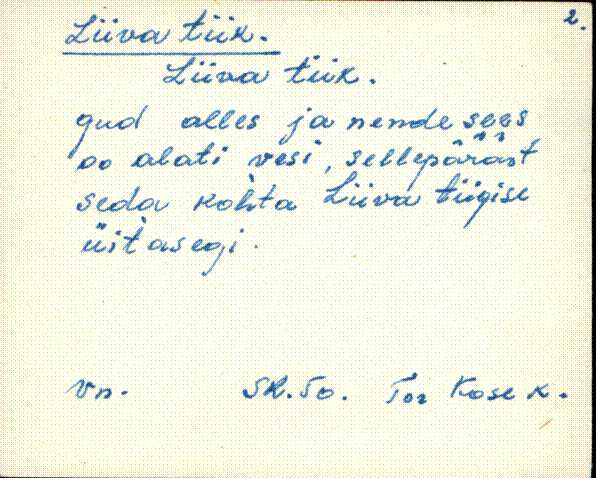 2.
Liiva tiik.
Liiva tiik.
gud alles ja nende sees
oo alati vesi, sellepärast
seda kohta Liiva tiigise
üitasegi.
Vn. SK. 50. Tor Kose k.